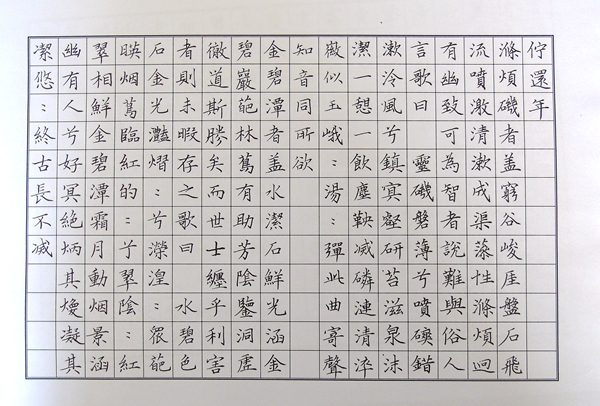 佇還年
滌煩磯者蓋窮谷峻厓盤石飛
流噴激清漱成渠蕩性滌煩迥
有幽致可為智者說難與俗人
言歌曰 靈磯磐薄兮噴磢錯
漱泠風兮鎮冥壑研苔滋泉沫
潔一憩一飲塵鞅滅磷漣清淬
徽似玉峨：湯：彈此曲寄聲
知音同所欲
金碧潭者蓋水潔石鮮光涵金
碧巖葩林蔦有助芳陰鑒洞虛
徹道斯勝矣而世士纏乎利害
者則未暇存之歌曰 水碧色
石金光灩熠：兮濴湟：葩
映烟蔦臨紅的：兮翠陰：紅
翠相鮮金碧潭霜月動烟景涵
幽有人兮好冥絕炳其煥凝其
潔悠：終古長不滅